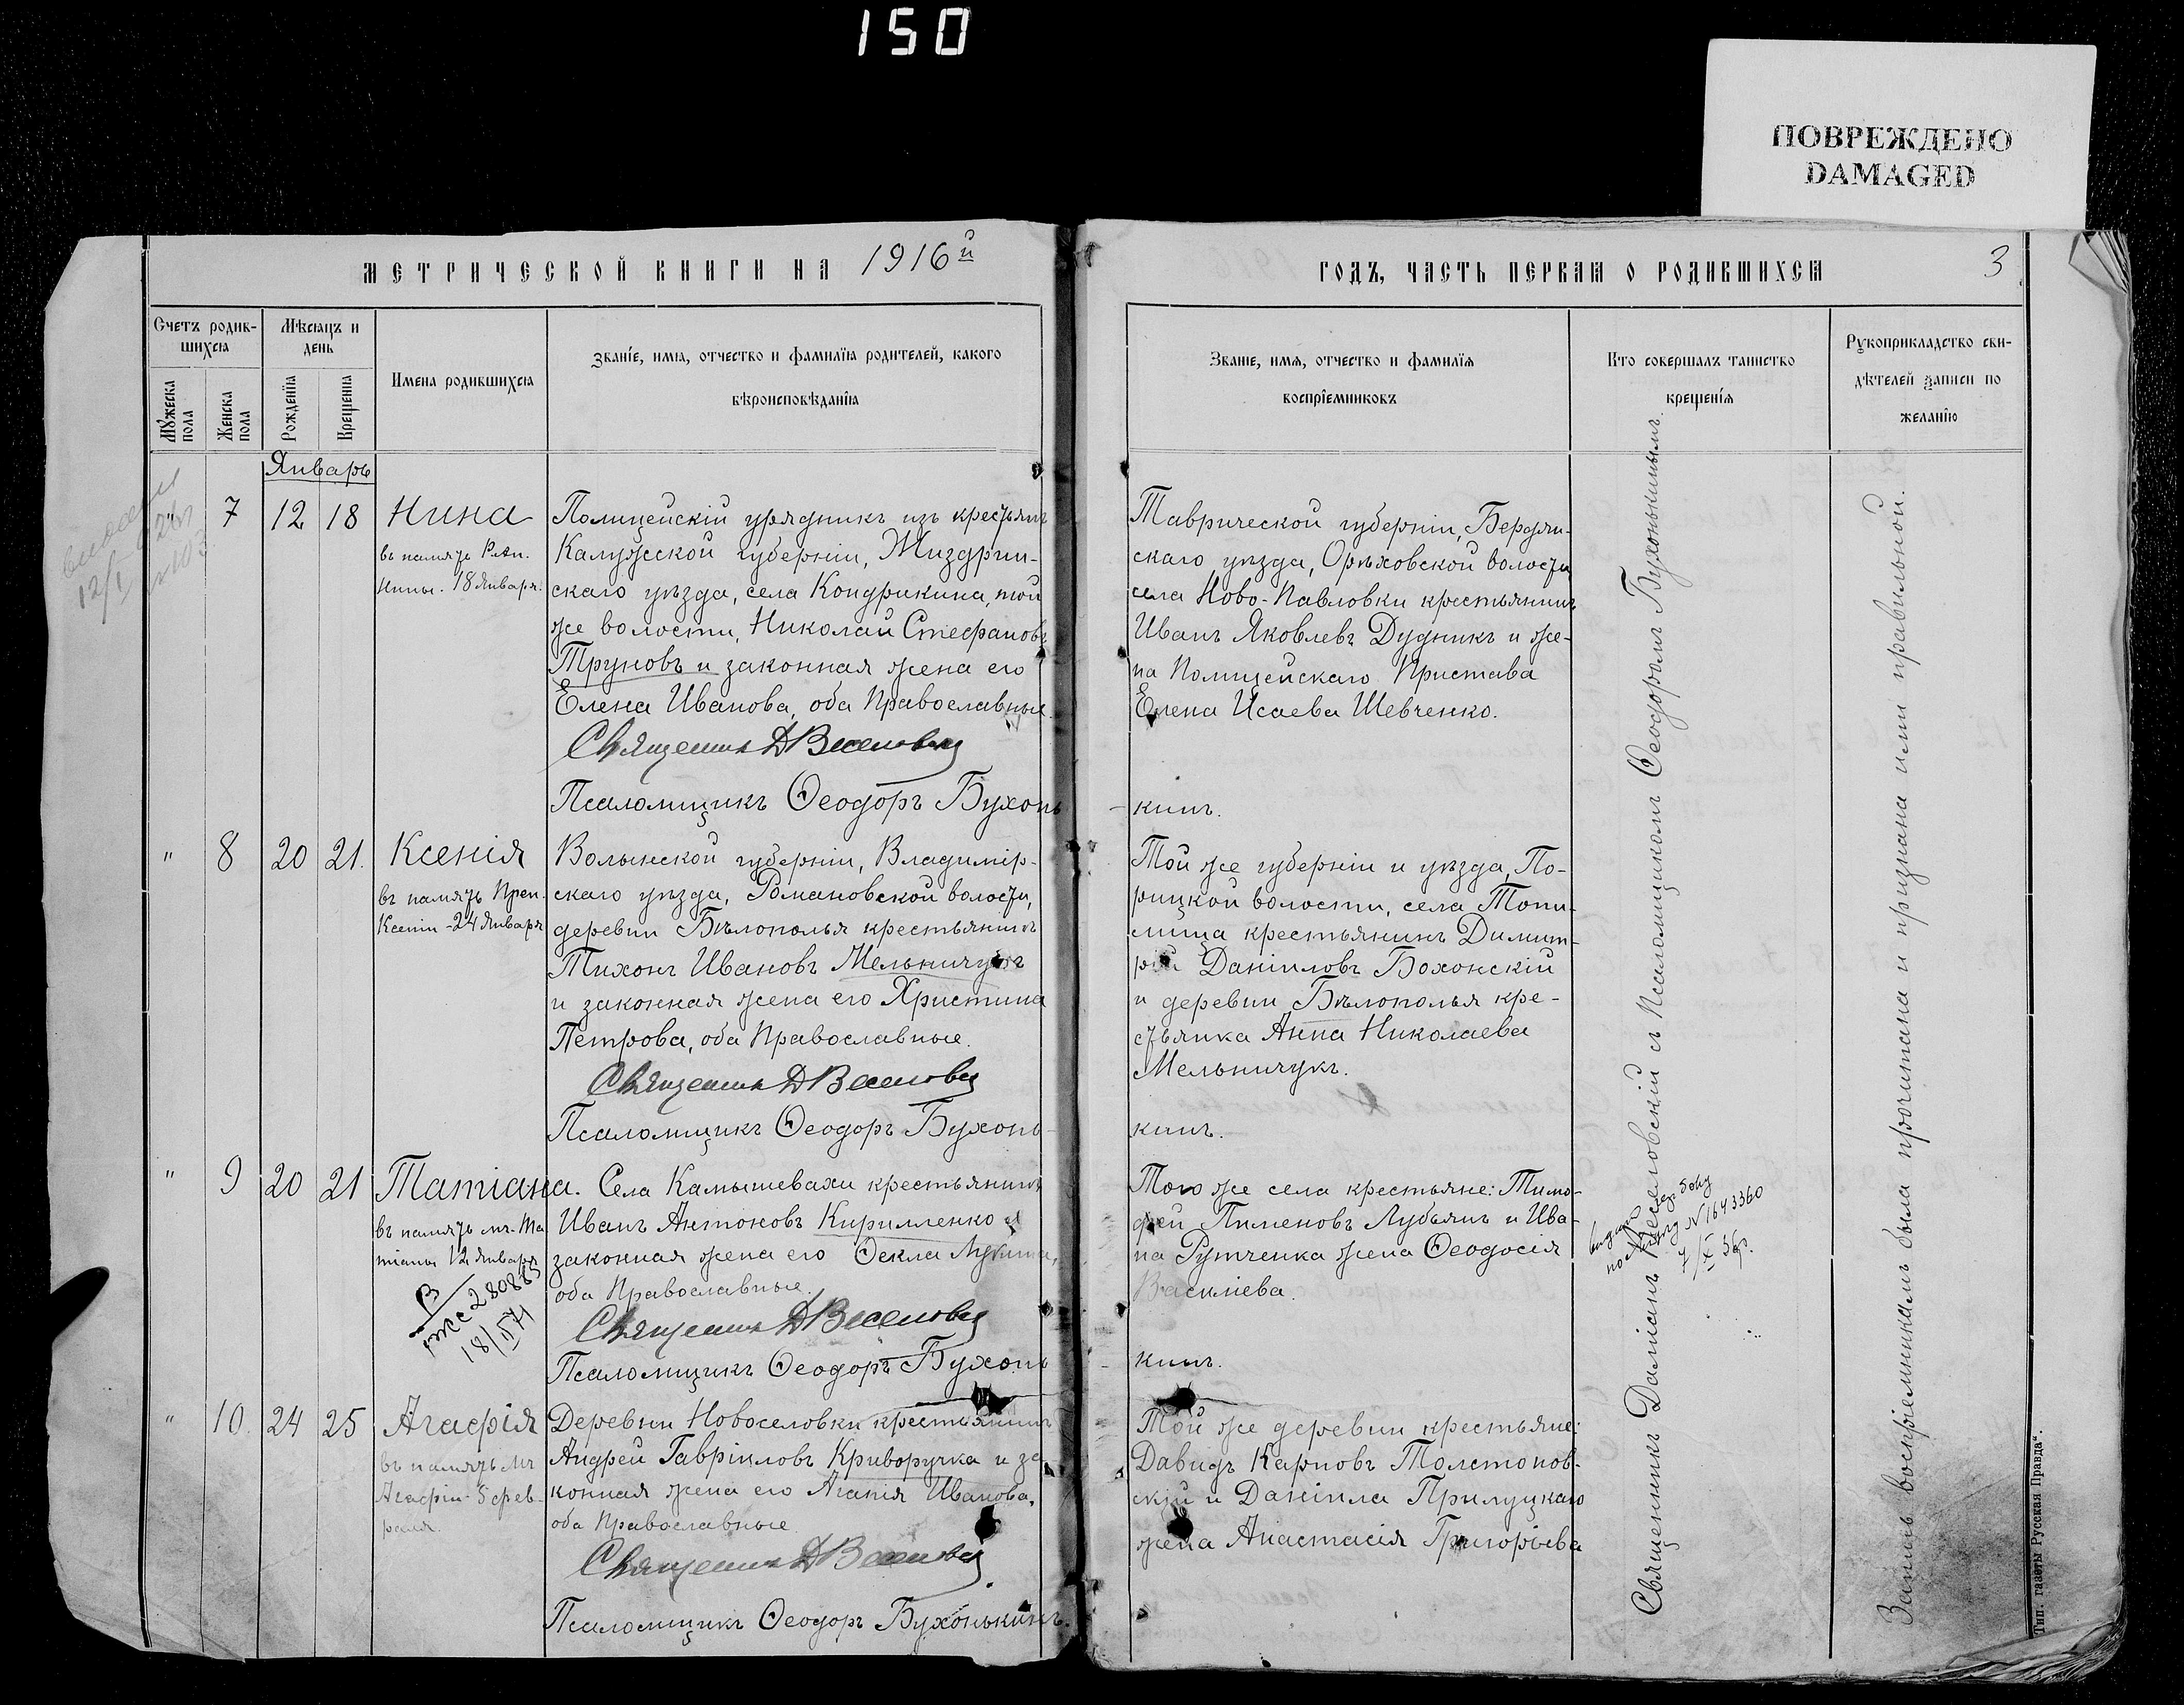 150
ПОВРЕЖДЕНО
DAMAGED
МЕТРИЧЕСКОЙ КНИГИ НА 1916й
Счетъ родив-
шихся
Мѣсяцъ и
день
Мужеска
пола
Женска
пола
Рожденія
Крещенія
Имена родившихся
Званіе, имя, отчество и фамилія родителей, какого
вѣроисповѣданія
Январь
" 7 12 18 Нина
въ память Рав.
Нины. 18 Января.
Полицейскій урядникъ изъ крестьянъ
Калужской губерніи, Жиздрин-
скаго уѣзда, села Кондрикина, той
же волости, Николай Стефановъ
Труновъ и законная жена его
Елена Иванова, оба Православные.
Священникъ Д Веселовскій
Псаломщикъ Ѳеодоръ Бухонь
" 8 20 21. Ксенія
въ память Преп.
Ксеніи - 24 Января
Волынской губерніи, Владимір-
скаго уѣзда, Романовской волости,
деревни Бѣлополья крестьянинъ
Тихонъ Ивановъ Мельничукъ
и законная жена его Христина
Петрова, оба Православные.
Священникъ Д Веселовскій
Псаломщикъ Ѳеодоръ Бухонь-
" 9 20 21 Татіана.
въ память мч. Та
тіаны 12 Января
18/II 71
Села Камышевахи крестьянинъ
Иванъ Антоновъ Кирилленко и
законная жена его Ѳекла Лукина,
оба Православные.
Священникъ Д Веселовскій
Псаломщикъ Ѳеодоръ Бухонь
" 10. 24 25 Агафія
въ память Мч
Агафіи 5 фев-
раля.
Деревни Новоселовки крестьянинъ
Андрей Гавріиловъ Криворучка и за-
конная жена его Агапія Иванова,
оба Православные
Священникъ Д Веселовскій
Псаломщикъ Ѳеодоръ Бухонькинъ.
ГОДЪ, ЧАСТЬ ПЕРВАЯ О РОДИВШИХСЯ
3
Званіе, имя, отчество и фамилія
воспріемниковъ
Кто совершалъ таинство
крещенія
Рукоприкладство сви-
дѣтелей записи по
желанію
Таврической губерніи, Бердян-
скаго уѣзда, Орѣховской волости
села Ново-Павловки крестьянинъ
Иванъ Яковлевъ Дудникъ и же-
на Полицейскаго Пристава
Елена Исаева Шевченко.
- кинъ.
Той же губерніи и уѣзда, По-
рицкой волости, села Топи-
лища крестьянинъ Димит-
рій Даніиловъ Бохонскій
и деревни Бѣлополья кре-
стьянка Анна Николаева
Мельничукъ.
кинъ.
Того же села крестьяне: Тимо-
фей Пименовъ Лубянъ и Ива-
на Рутченка жена Ѳеодосія
Василіева.
- кинъ.
Той же деревни крестьяне:
Давидъ Карповъ Толстонов-
скій и Даніила Прилуцкаго
жена Анастасія Григорьева
Священникъ Даміанъ Веселовскій съ Псаломщикомъ Ѳеодоромъ Бухонькинымъ.
N 1643360
Запись воспріемникамъ была прочитана и признана ими правильной.
Тип. газеты „Русская Правда“.